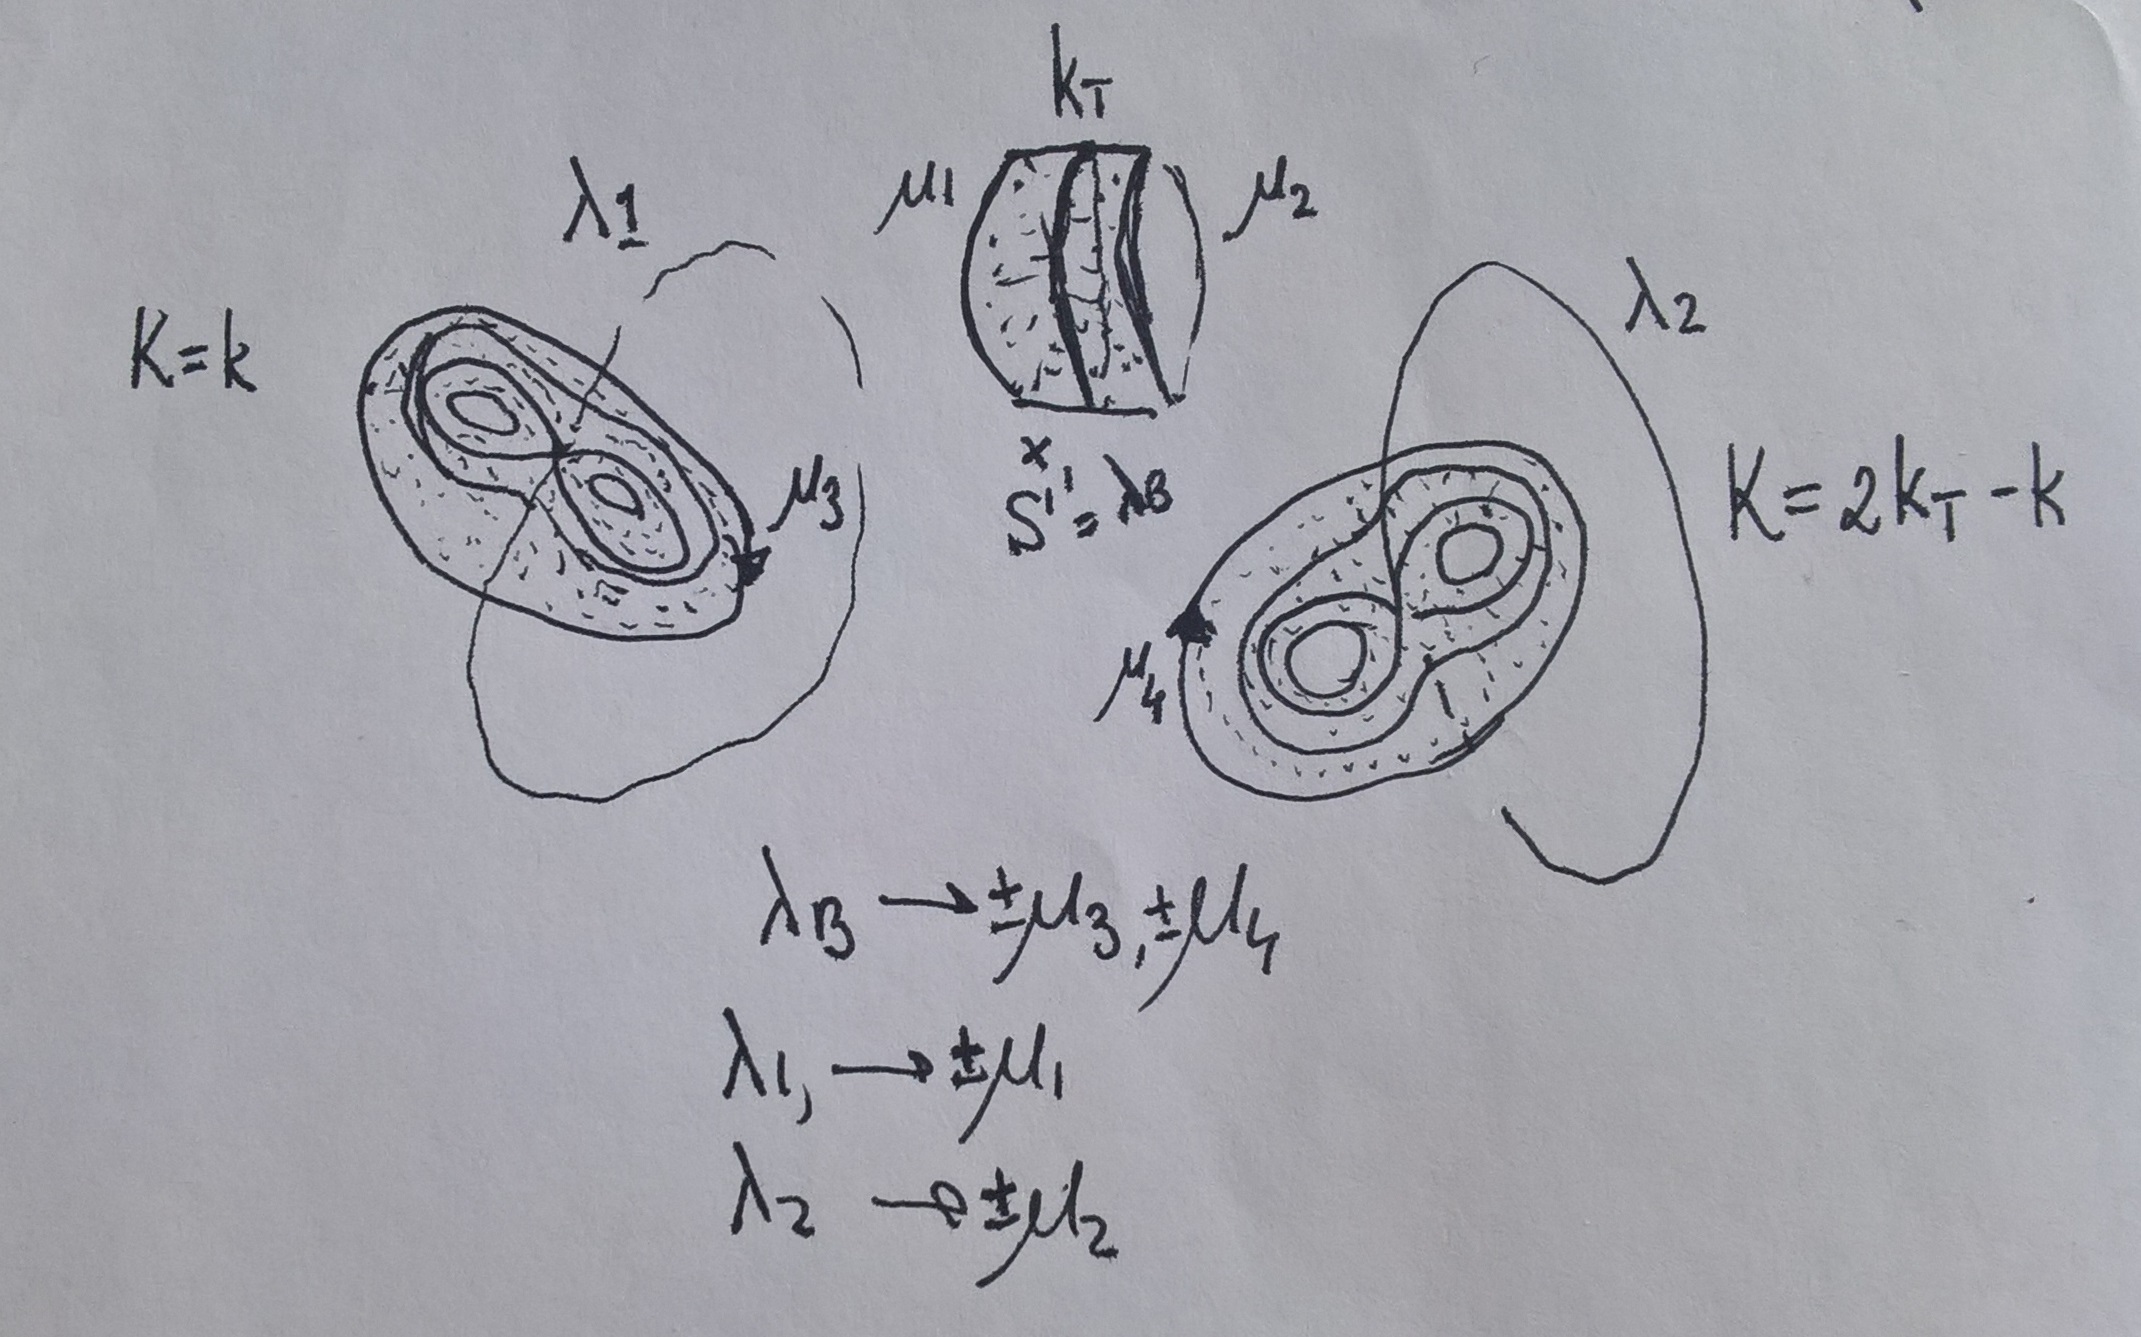 kT
λ1
μ1
μ2
λ2
K=k
μ3
x
S¹=λB
K=2kT-k
μ4
λB → ±μ3, ±μ4
λ1, → ±μ1
λ2 → ±μ2